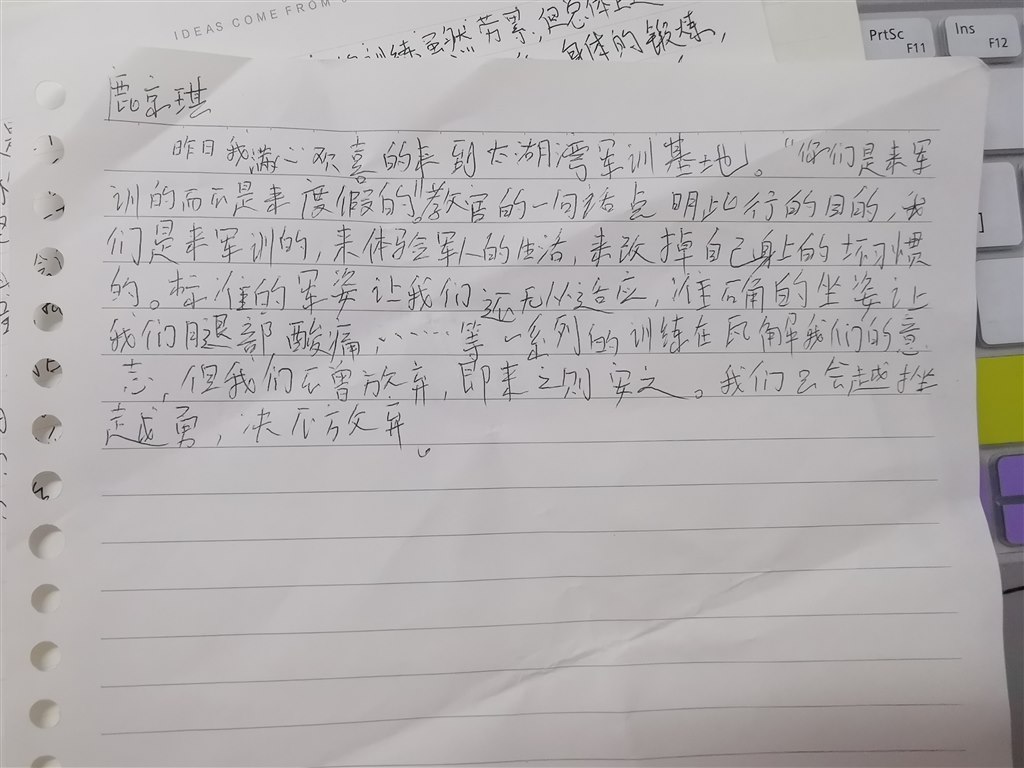 IDEAS COME FROM
训练虽然劳累,但总体上
身体的锻炼,
PrtSc
F11
Ins
F12
鹿京琪
昨日我满心欢喜的来到太湖湾军训基地」。“你们是来军
训的而不是来度假的”教官的一句话点明此行的目的,我
们是来军训的,来体验军人的生活,来改掉自己身上的坏习惯
的。标准的军姿让我们还无从适应,准确的坐姿让
我们腿部酸痛,……等一系列的训练在瓦解我们的意
志,但我们不曾放弃,即来之则安之。我们只会越挫
越勇,决不放弃。